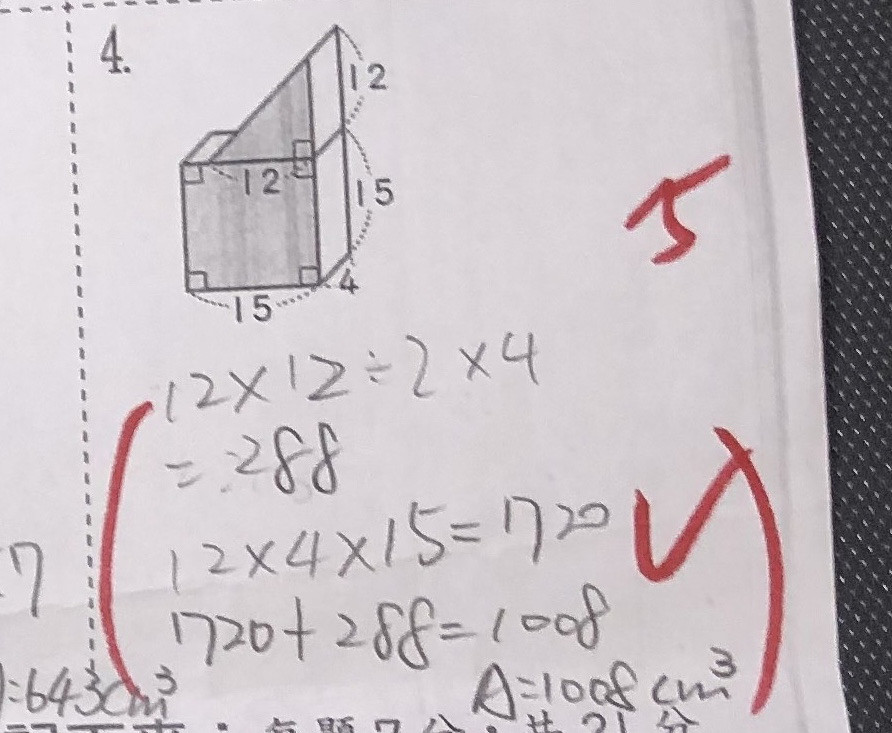 4.
12
12
15
15
4
5
12×12÷2×4
=288
12×4×15=720
720+288=1008
7
)=643cm³
A=1008cm³
:每題7分,共21分